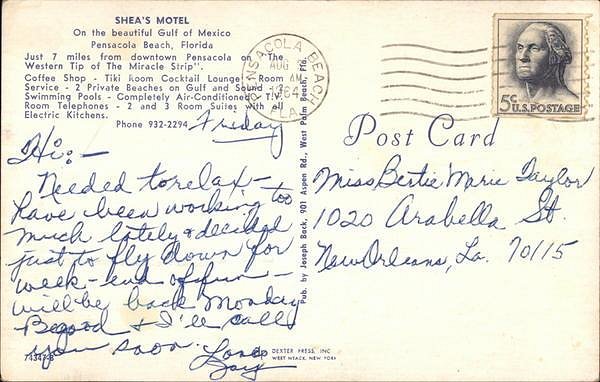 SHEA'S MOTEL
On the beautiful Gulf of Mexico
Pensacola Beach, Florida
Just 7 miles from downtown Pensacola on "The
Western Tip of The Miracle Strip".
Coffee Shop - Tiki Room Cocktail Lounge - Room
Service - 2 Private Beaches on Gulf and Sound -
Swimming Pools - Completely Air-Conditioned - T.V.
Room Telephones - 2 and 3 Room Suites with all
Electric Kitchens.
Phone 932-2294
Friday
Hi:-
Needed to relax -
have been working too
much lately & decided
just to fly down for
week-end of fun -
will be back Monday
Be good & I'll call
you soon.
Love
74347-B
DEXTER PRESS, INC
WEST NYACK, NEW YORK
Pub. by Joseph Back, 901 Aspen Rd., West Palm Beach, Fla.
PENSACOLA BEACH
AUG
AM
1964
FLA.
5¢ U.S. POSTAGE
Post Card
Miss Bertie Marie Taylor
1020 Arabella St.
New Orleans, La. 70115